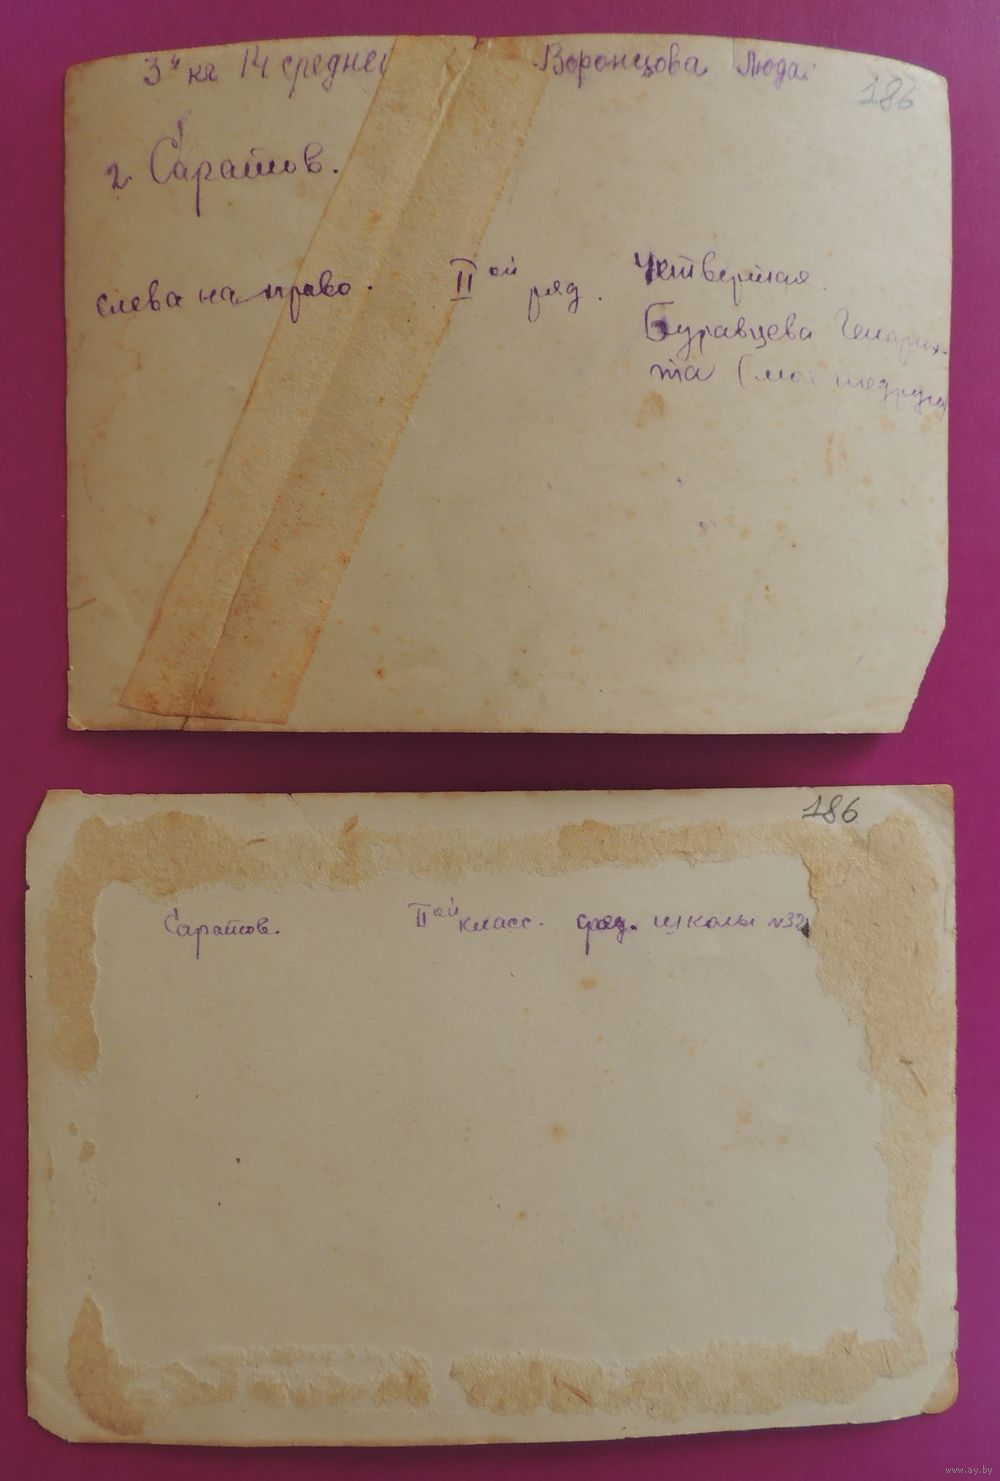 3й кл 14 средней Воронцова Люда
186
г. Саратов.
слева на право. IIой ряд. Четвертая
Буравцева Генариэ-
та (моя подруга
186
Саратов. IIой класс. сред. школы №32
www.ay.by